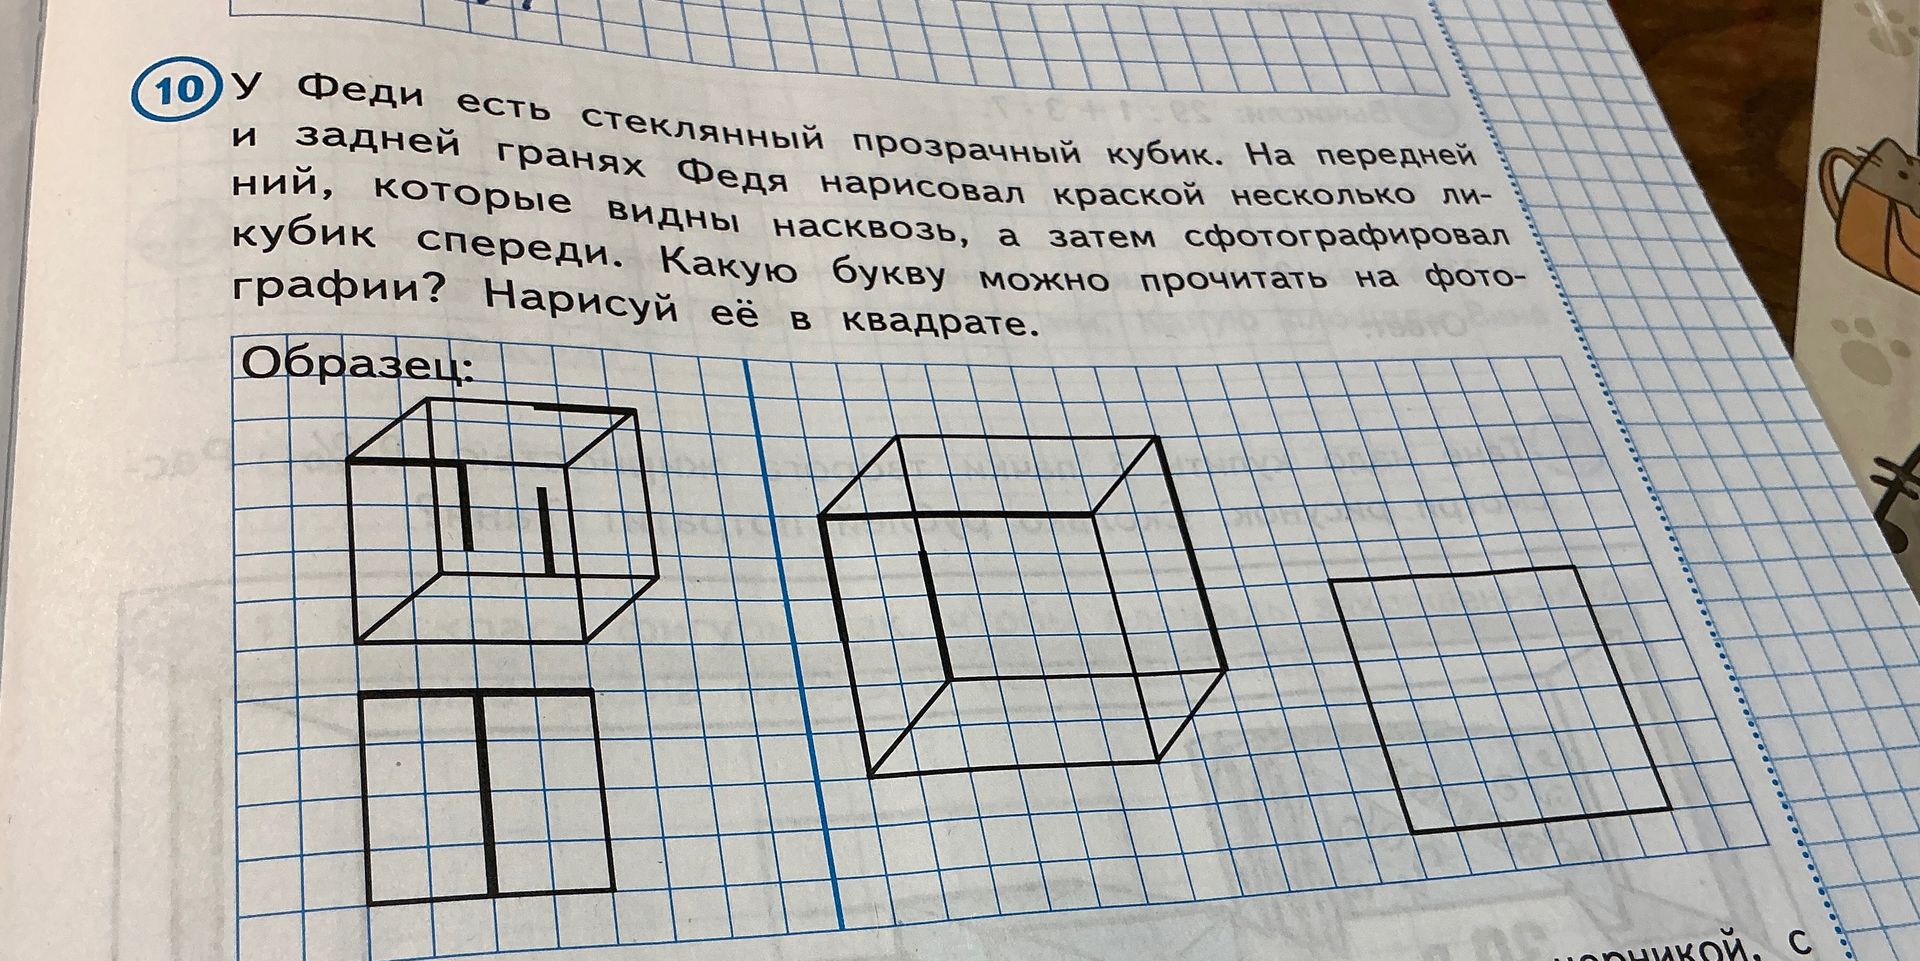 10 У Феди есть стеклянный прозрачный кубик. На передней
и задней гранях Федя нарисовал краской несколько ли-
ний, которые видны насквозь, а затем сфотографировал
кубик спереди. Какую букву можно прочитать на фото-
графии? Нарисуй её в квадрате.
Образец: